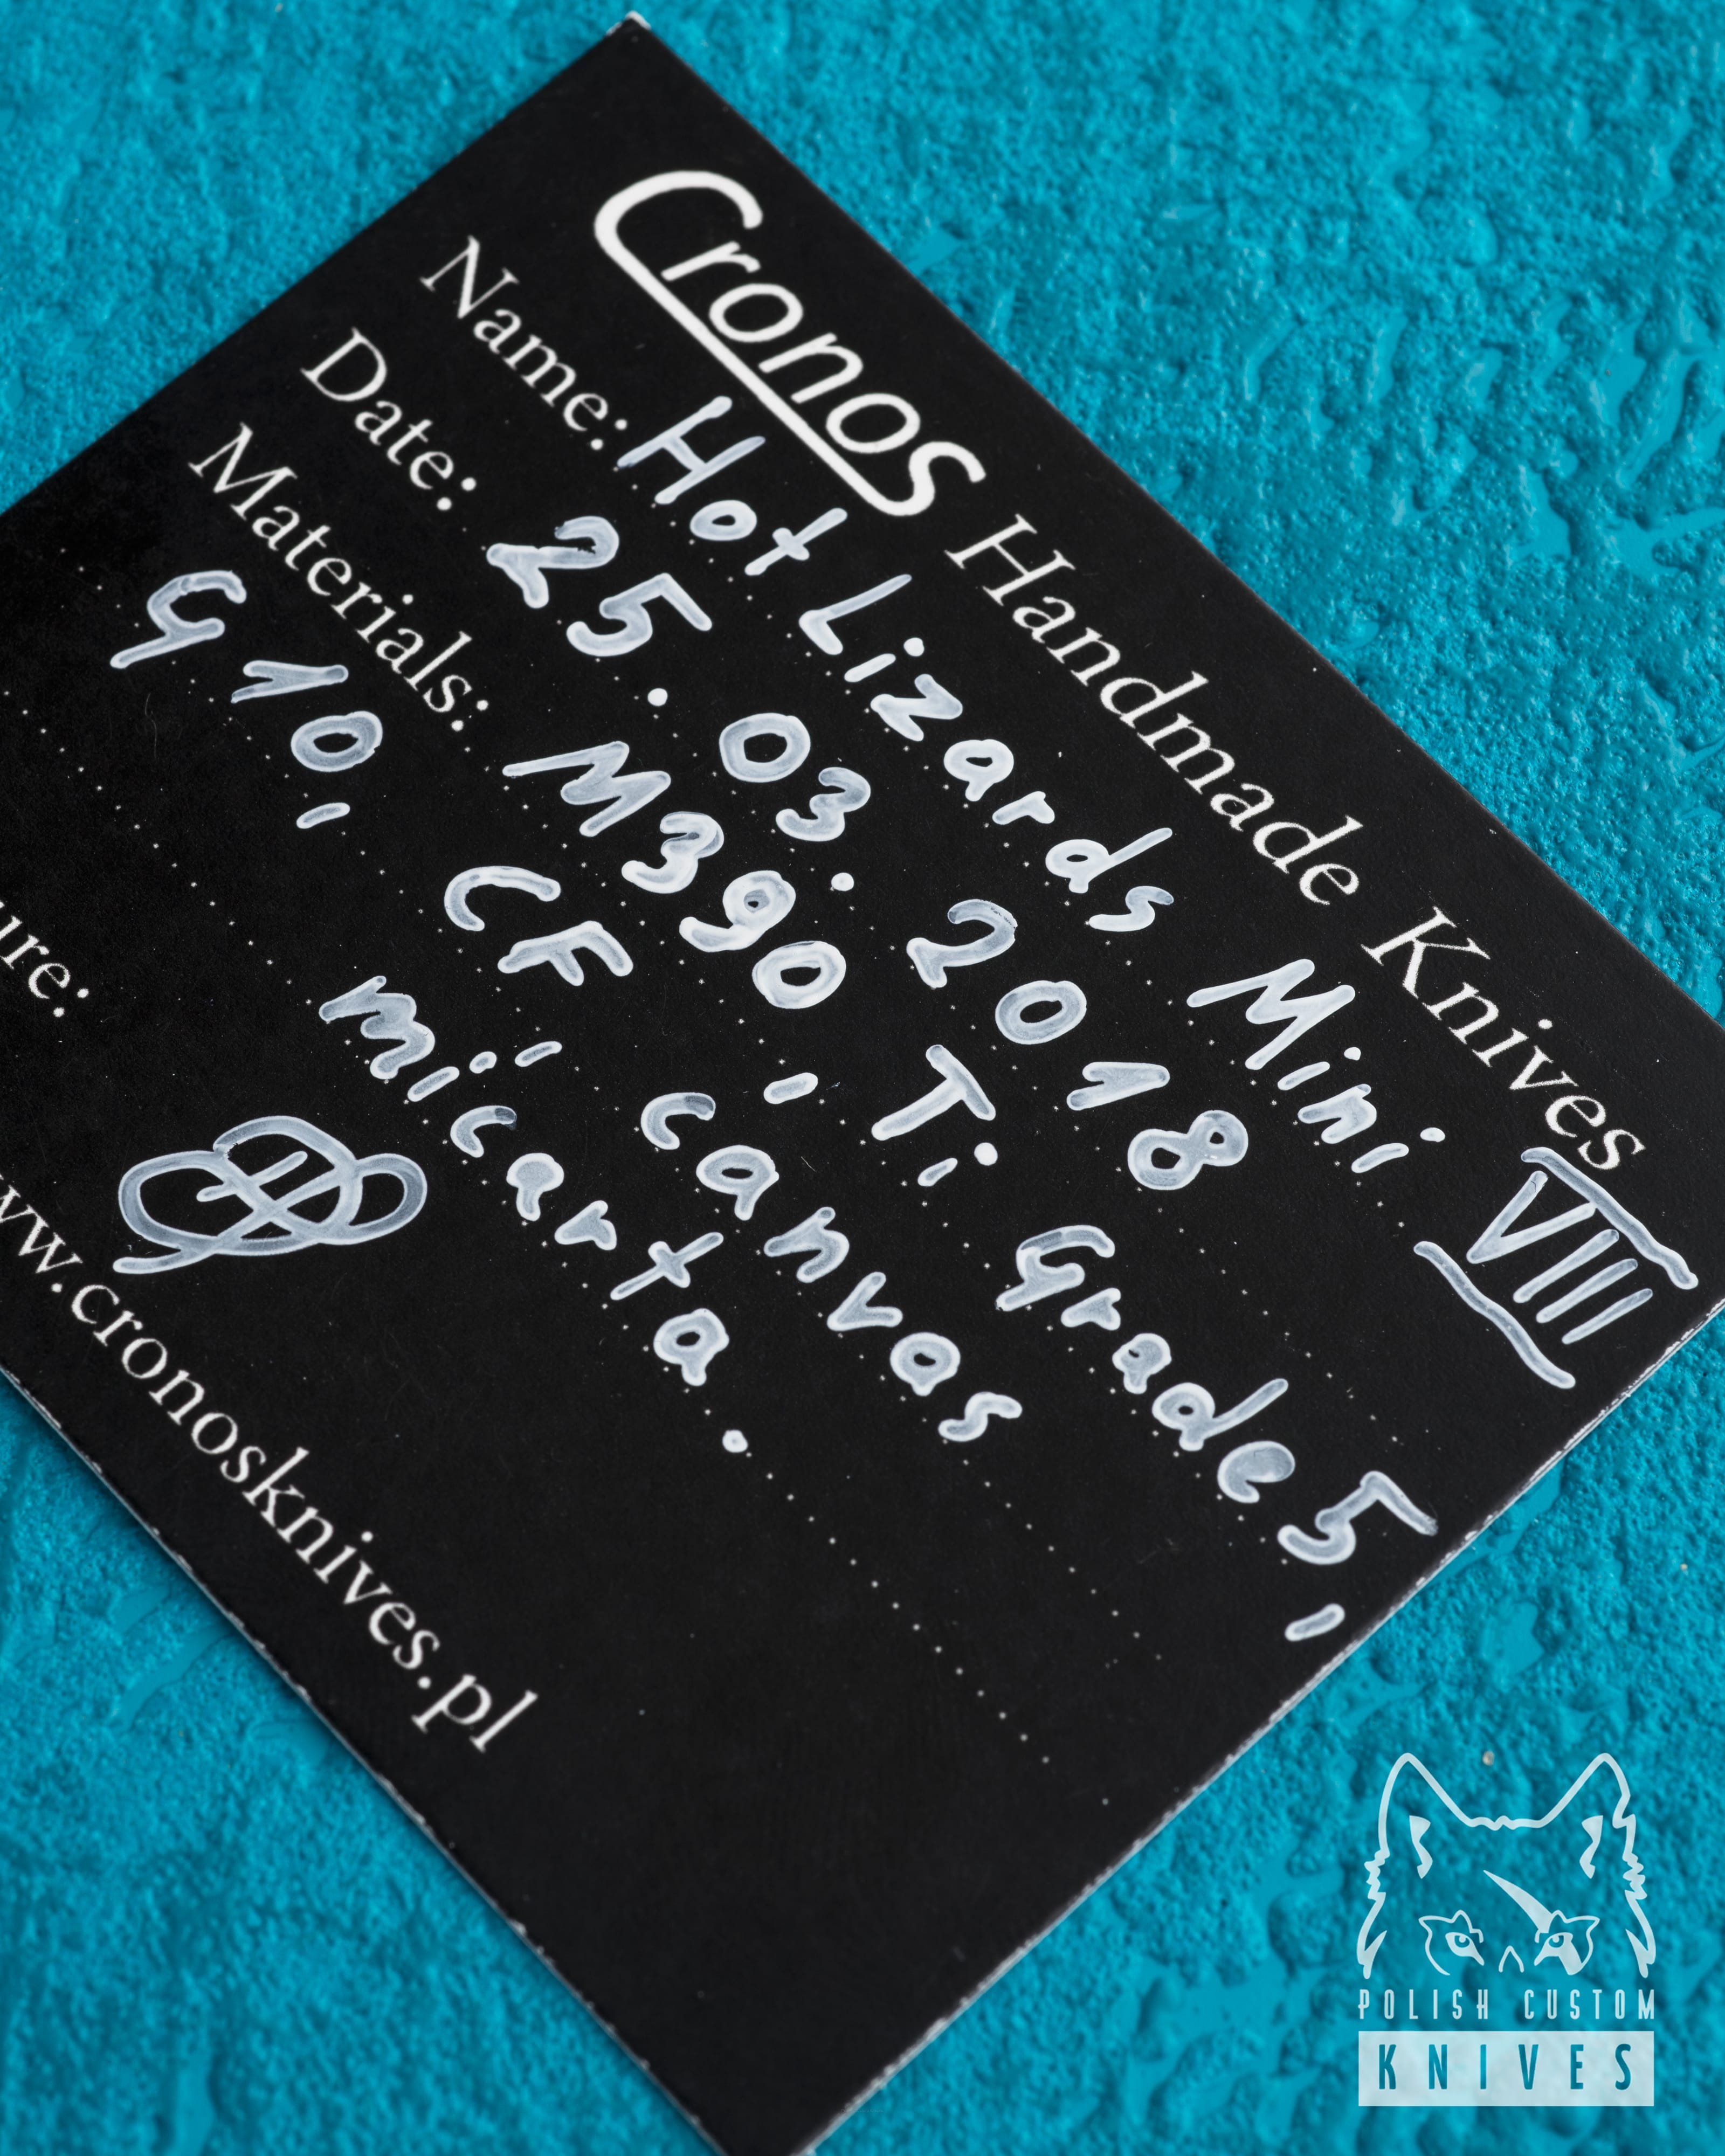 Cronos Handmade Knives
Name: Hot Lizards Mini VIII
Date: 25.03.2018
Materials: M390, Ti Grade 5,
G10, CF, canvas
micarta.
ure:
ww.cronosknives.pl
POLISH CUSTOM
KNIVES